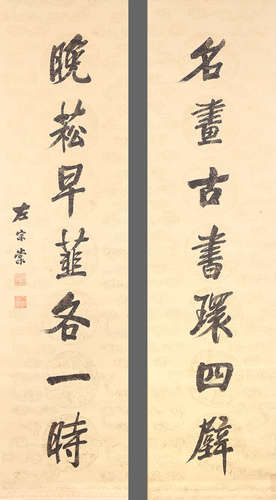 名畫古書環四壁
晚菘早韮各一時
左宗棠